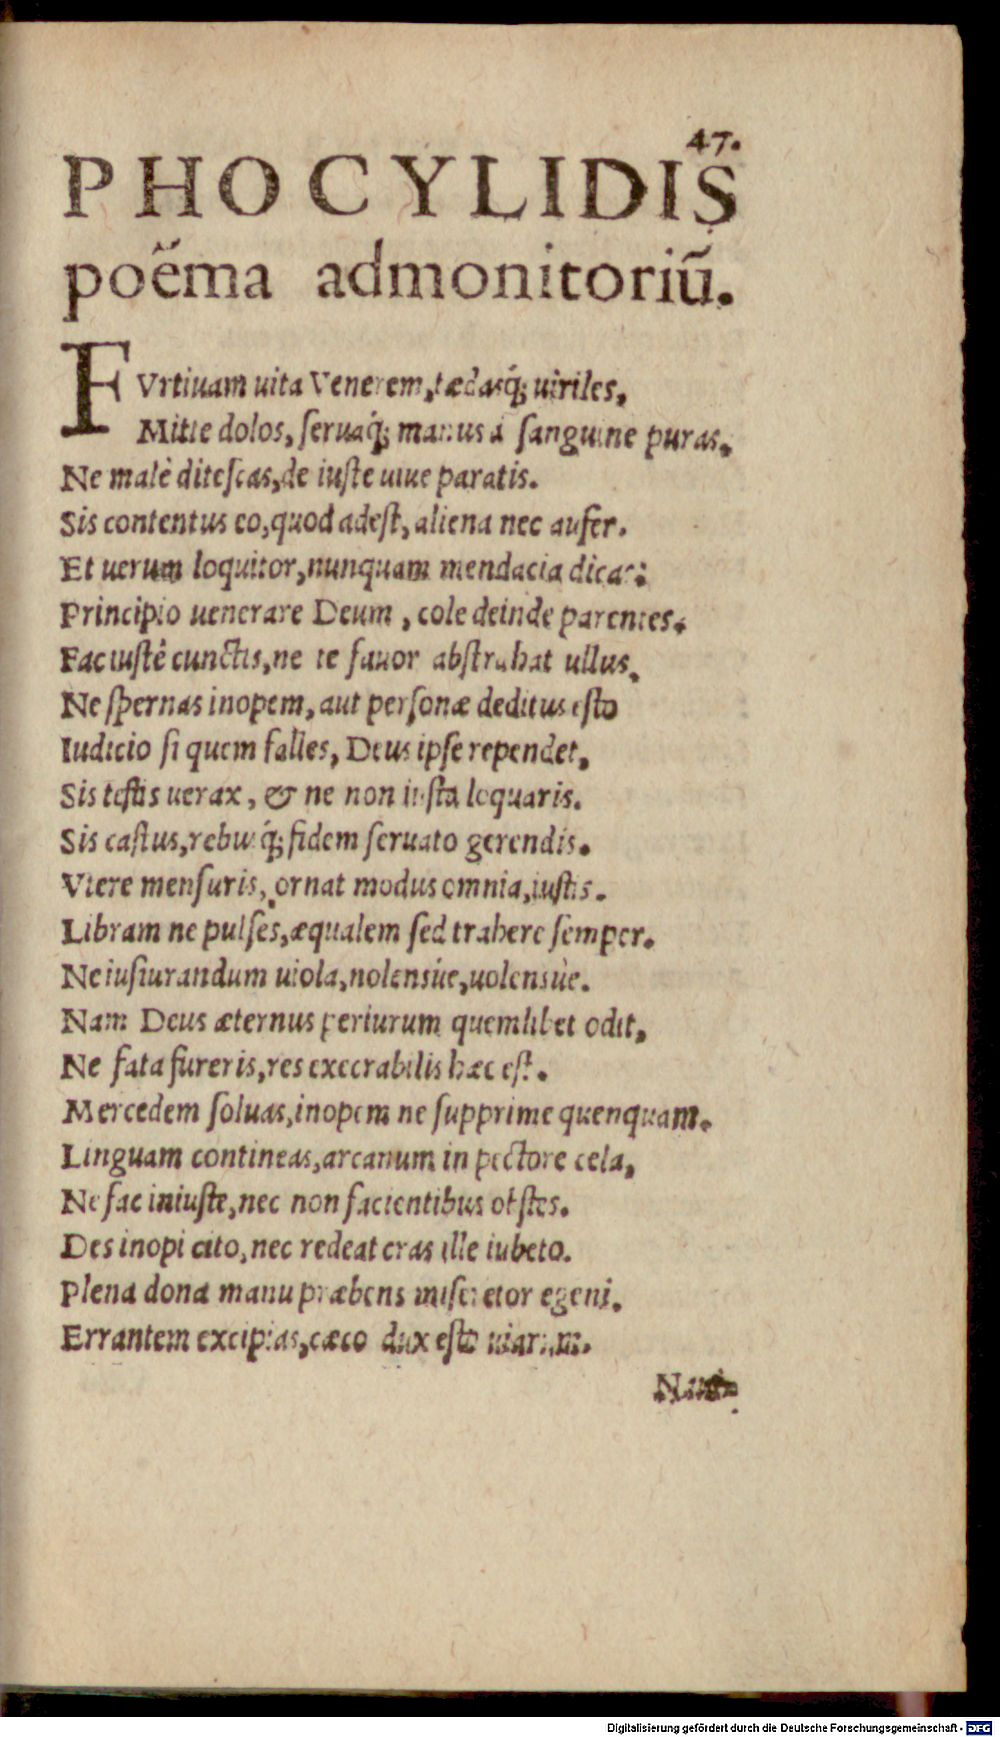 47.
PHOCYLIDIS
poëma admonitoriũ.
FVrtiuam uita Venerem, tædasq́; uiriles,
Mitte dolos, ſeruaq́; manus à ſanguine puras.
Ne malè diteſcas, de iuſte uiue paratis.
Sis contentus eo, quod adeſt, aliena nec aufer.
Et uerum loquitor, nunquam mendacia dicas:
Principio uenerare Deum, cole deinde parentes.
Fac iuſtè cunctis, ne te fauor abſtrahat ullus.
Ne ſpernas inopem, aut perſonæ deditus eſto
Iudicio ſi quem falles, Deus ipſe rependet.
Sis teſtis uerax, & ne non iuſta loquaris.
Sis caſtus, rebusq́; fidem ſeruato gerendis.
Vtere menſuris, ornat modus omnia, iuſtis.
Libram ne pulſes, æqualem ſed trahere ſemper.
Ne iuſiurandum uiola, nolensùe, uolensùe.
Nam Deus æternus periurum quemlibet odit,
Ne ſata fureris, res execrabilis hæc eſt.
Mercedem ſoluas, inopem ne ſupprime quenquam.
Linguam contineas, arcanum in pectore cela,
Ne fac iniuſte, nec non facientibus obſtes.
Des inopi cito, nec redeat cras ille iubeto.
Plena dona manu præbens miſeretor egeni.
Errantem excipias, cæco dux eſto uiarum.
Digitalisierung gefördert durch die Deutsche Forschungsgemeinschaft - DFG